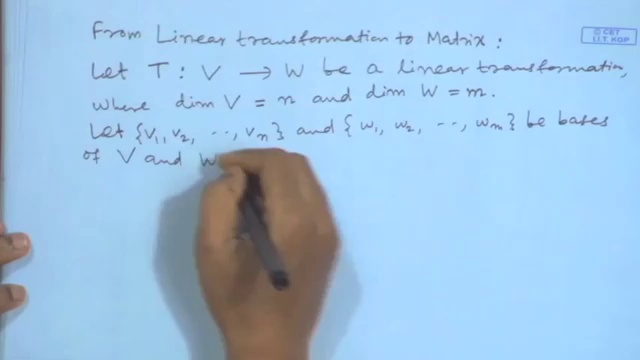 From Linear transformation to Matrix:
© CET
I.I.T. KGP
Let T: V → W be a linear transformation,
where dim V = n and dim W = m.
Let {v₁, v₂, ..., vₙ} and {w₁, w₂, ..., wₘ} be bases
of V and W